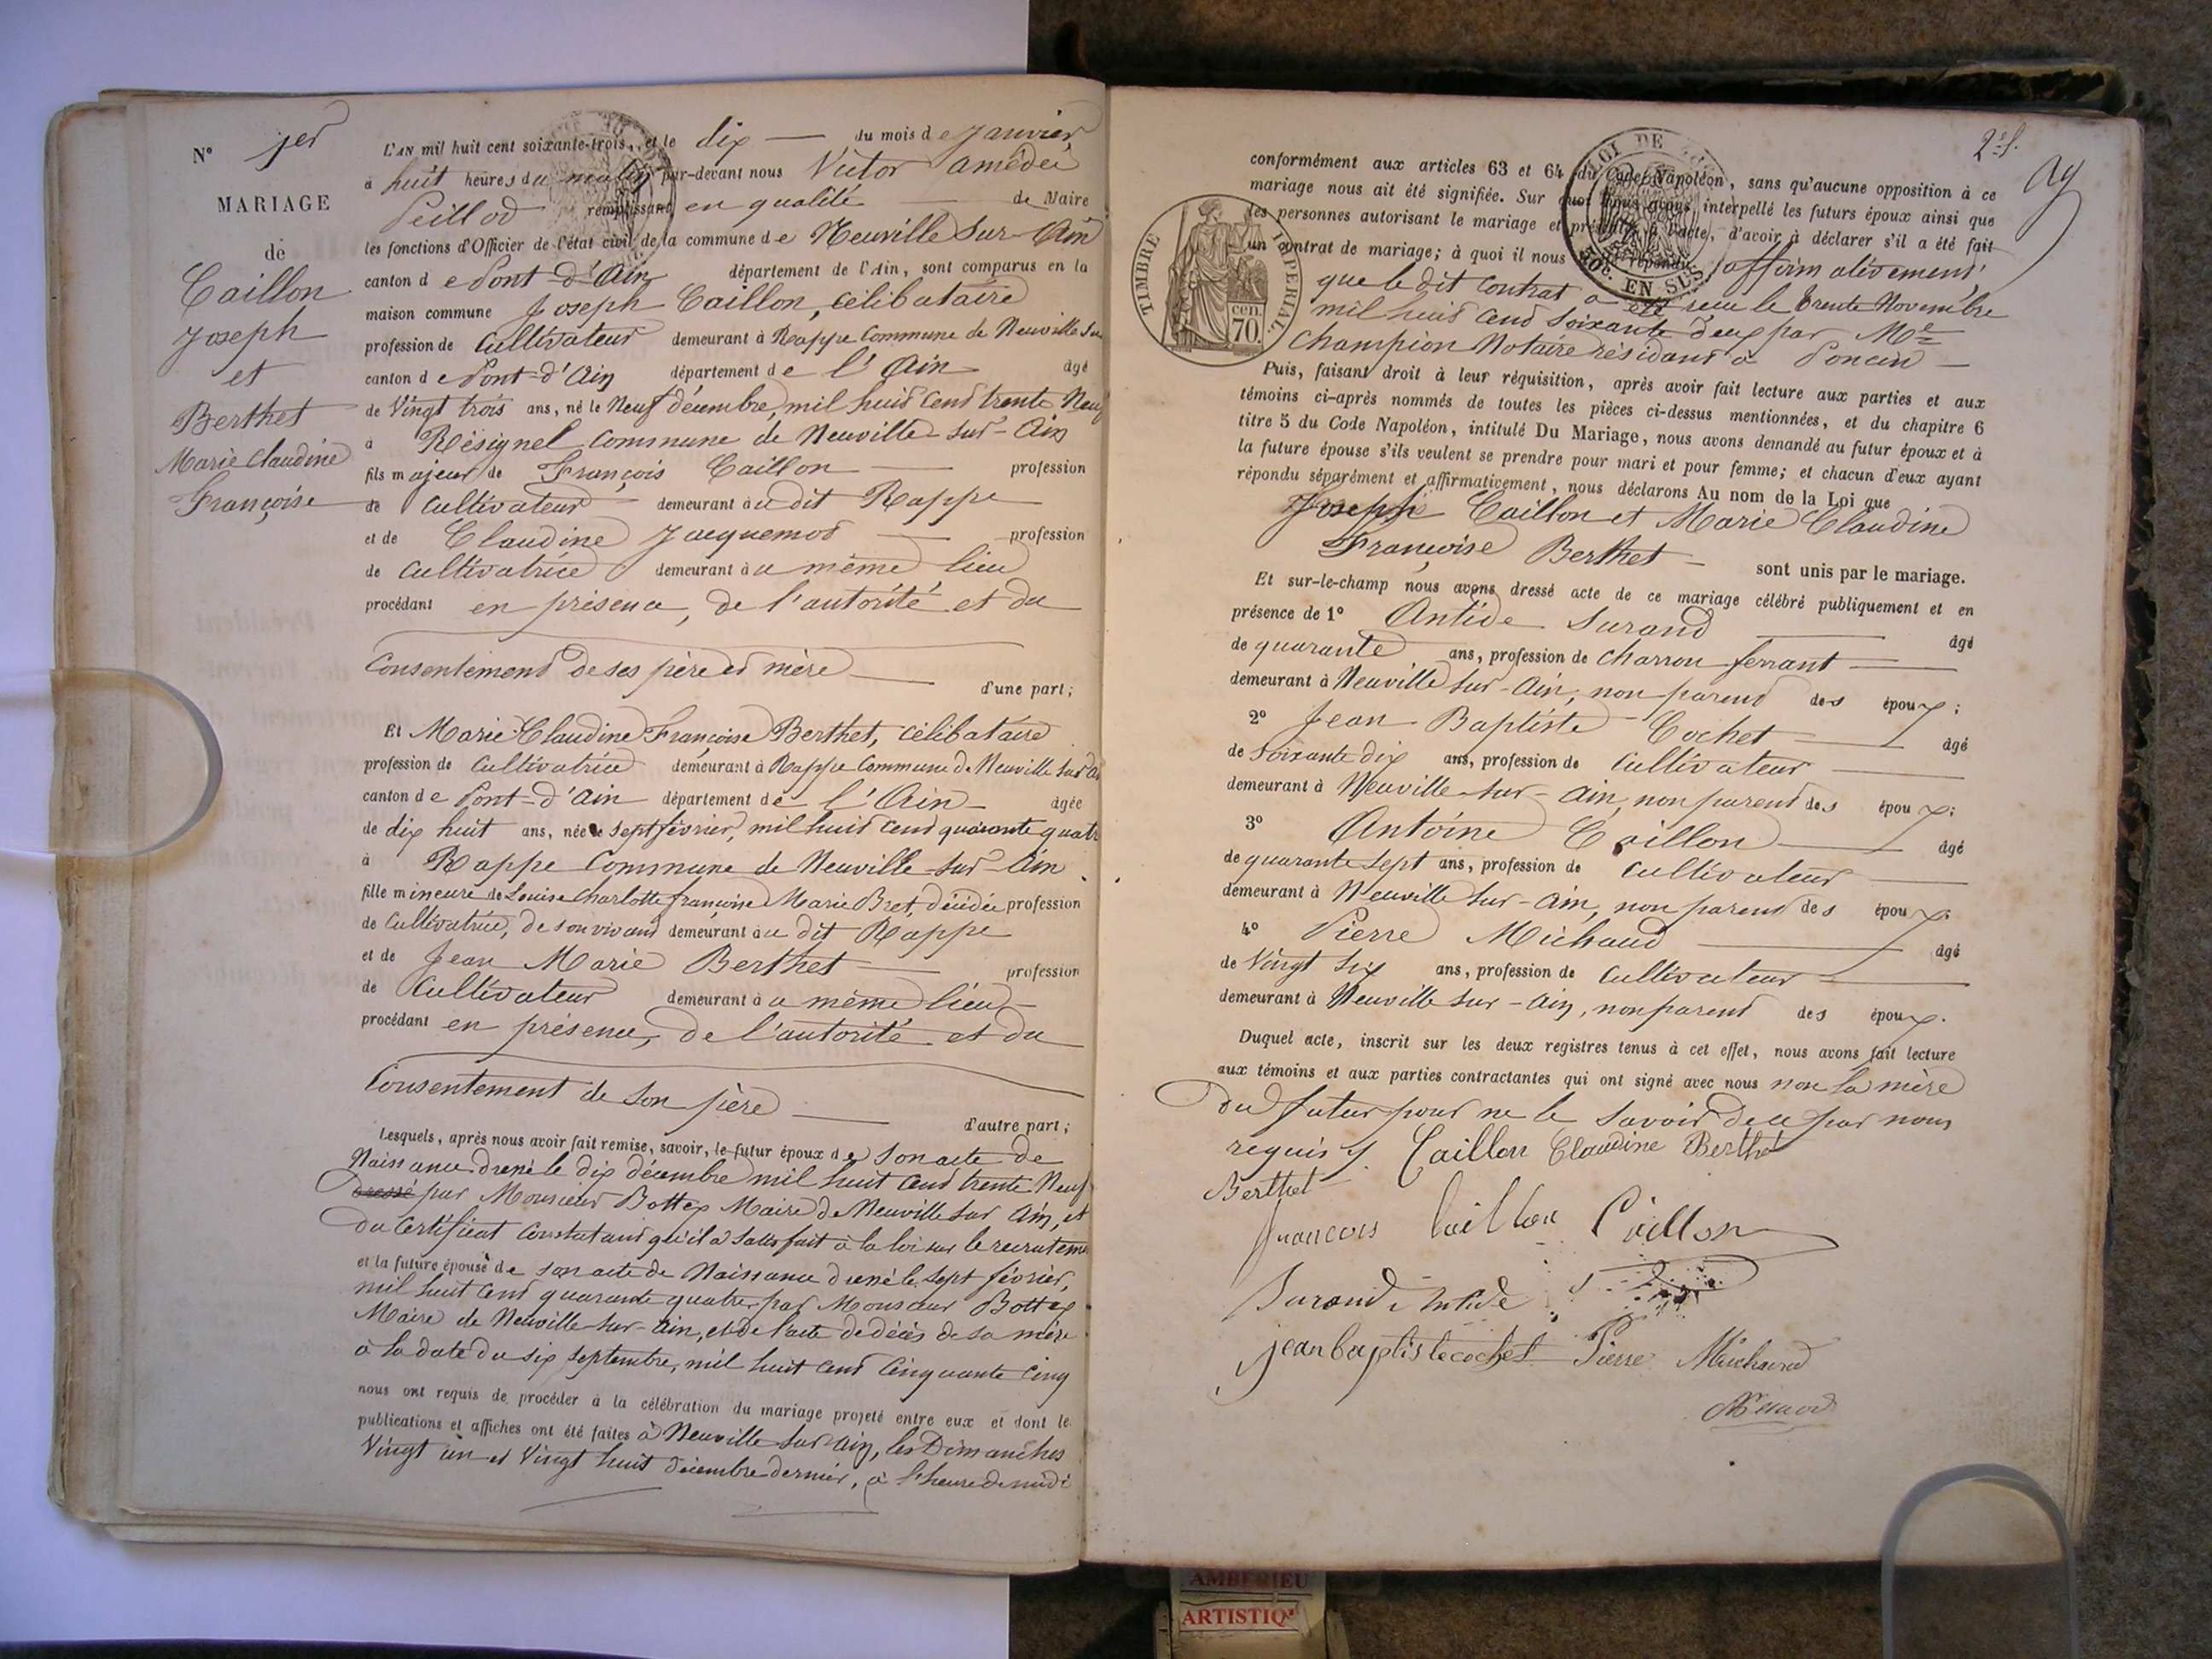 N° 1er
MARIAGE
de
Caillon
Joseph
et
Berthet
Marie Claudine
Françoise
L'AN mil huit cent soixante-trois, et le dix du mois de Janvier,
à huit heures du matin par-devant nous Victor Amédée
Peillod remplissant en qualité de Maire
les fonctions d'Officier de l'état civil de la commune de Neuville sur-Ain
canton de Pont-d'Ain département de l'Ain, sont comparus en la
maison commune Joseph Caillon, célibataire
profession de Cultivateur demeurant à Rappe Commune de Neuville sur
canton de Pont-d'Ain département de l'Ain âgé
de Vingt trois ans, né le Neuf décembre, mil huit cent trente Neuf
à Résignel Commune de Neuville-sur-Ain
fils majeur de François Caillon profession
de Cultivateur demeurant au dit Rappe
et de Claudine Jacquemod profession
de Cultivatrice demeurant au même lieu
procédant en présence, de l'autorité et du
Consentement de ses père et mère
d'une part;
Et Marie Claudine Françoise Berthet, célibataire
profession de Cultivatrice demeurant à Rappe Commune de Neuville sur Ain
canton de Pont-d'Ain département de l'Ain âgée
de dix huit ans, née le sept février, mil huit cent quarante quatre
à Rappe Commune de Neuville-sur-Ain
fille mineure de Louise Charlotte françoise Marie Bret, décédée profession
de Cultivatrice, de son vivant demeurant au dit Rappe
et de Jean Marie Berthet profession
de Cultivateur demeurant au même lieu
procédant en présence, de l'autorité et du
Consentement de son père
d'autre part;
Lesquels, après nous avoir fait remise, savoir, le futur époux de son acte de
Naissance dressé le dix décembre mil huit cent trente Neuf
dressé par Monsieur Bottex Maire de Neuville sur Ain, et
du Certificat Constatant qu'il a satisfait à la loi sur le recrutement
et la future épouse de son acte de Naissance dressé le sept février,
mil huit cent quarante quatre, par Monsieur Bottex
Maire de Neuville-sur-Ain, et de l'acte de décès de sa mère
à la date du six septembre, mil huit cent Cinquante Cinq
nous ont requis de procéder à la célébration du mariage projeté entre eux et dont les
publications et affiches ont été faites à Neuville sur Ain, les Dimanches
Vingt un et Vingt huit décembre dernier, à l'heure de midi
2e f.
conformément aux articles 63 et 64 du Code Napoléon, sans qu'aucune opposition à ce
mariage nous ait été signifiée. Sur quoi nous avons interpellé les futurs époux ainsi que
les personnes autorisant le mariage et présentes à l'acte, d'avoir à déclarer s'il a été fait
un contrat de mariage; à quoi il nous a été répondu affirmativement,
que le dit contrat a été reçu le trente Novembre
mil huit cent soixante deux par Me
Champion Notaire résidant à Poncin
TIMBRE IMPERIAL
70 cen.
50c. EN SUS
Puis, faisant droit à leur réquisition, après avoir fait lecture aux parties et aux
témoins ci-après nommés de toutes les pièces ci-dessus mentionnées, et du chapitre 6
titre 5 du Code Napoléon, intitulé Du Mariage, nous avons demandé au futur époux et à
la future épouse s'ils veulent se prendre pour mari et pour femme; et chacun d'eux ayant
répondu séparément et affirmativement, nous déclarons Au nom de la Loi que
Joseph Caillon et Marie Claudine
Françoise Berthet sont unis par le mariage.
Et sur-le-champ nous avons dressé acte de ce mariage célébré publiquement et en
présence de 1° Antide Durand âgé
de quarante ans, profession de charron ferrant
demeurant à Neuville sur-Ain, non parent des époux;
2° Jean Baptiste Cochet âgé
de soixante dix ans, profession de Cultivateur
demeurant à Neuville-sur-Ain, non parent des époux;
3° Antoine Caillon âgé
de quarante sept ans, profession de Cultivateur
demeurant à Neuville sur-Ain, non parent des époux.
4° Pierre Michaud âgé
de Vingt six ans, profession de Cultivateur
demeurant à Neuville sur-Ain, non parent des époux.
Duquel acte, inscrit sur les deux registres tenus à cet effet, nous avons fait lecture
aux témoins et aux parties contractantes qui ont signé avec nous non la mère
du futur pour ne le savoir de ce par nous
requis. Caillon Claudine Berthet
Berthet
françois Caillon Caillon
Durand Antide
jean baptiste cochet Pierre Michaud
AMBERIEU
ARTISTIQ